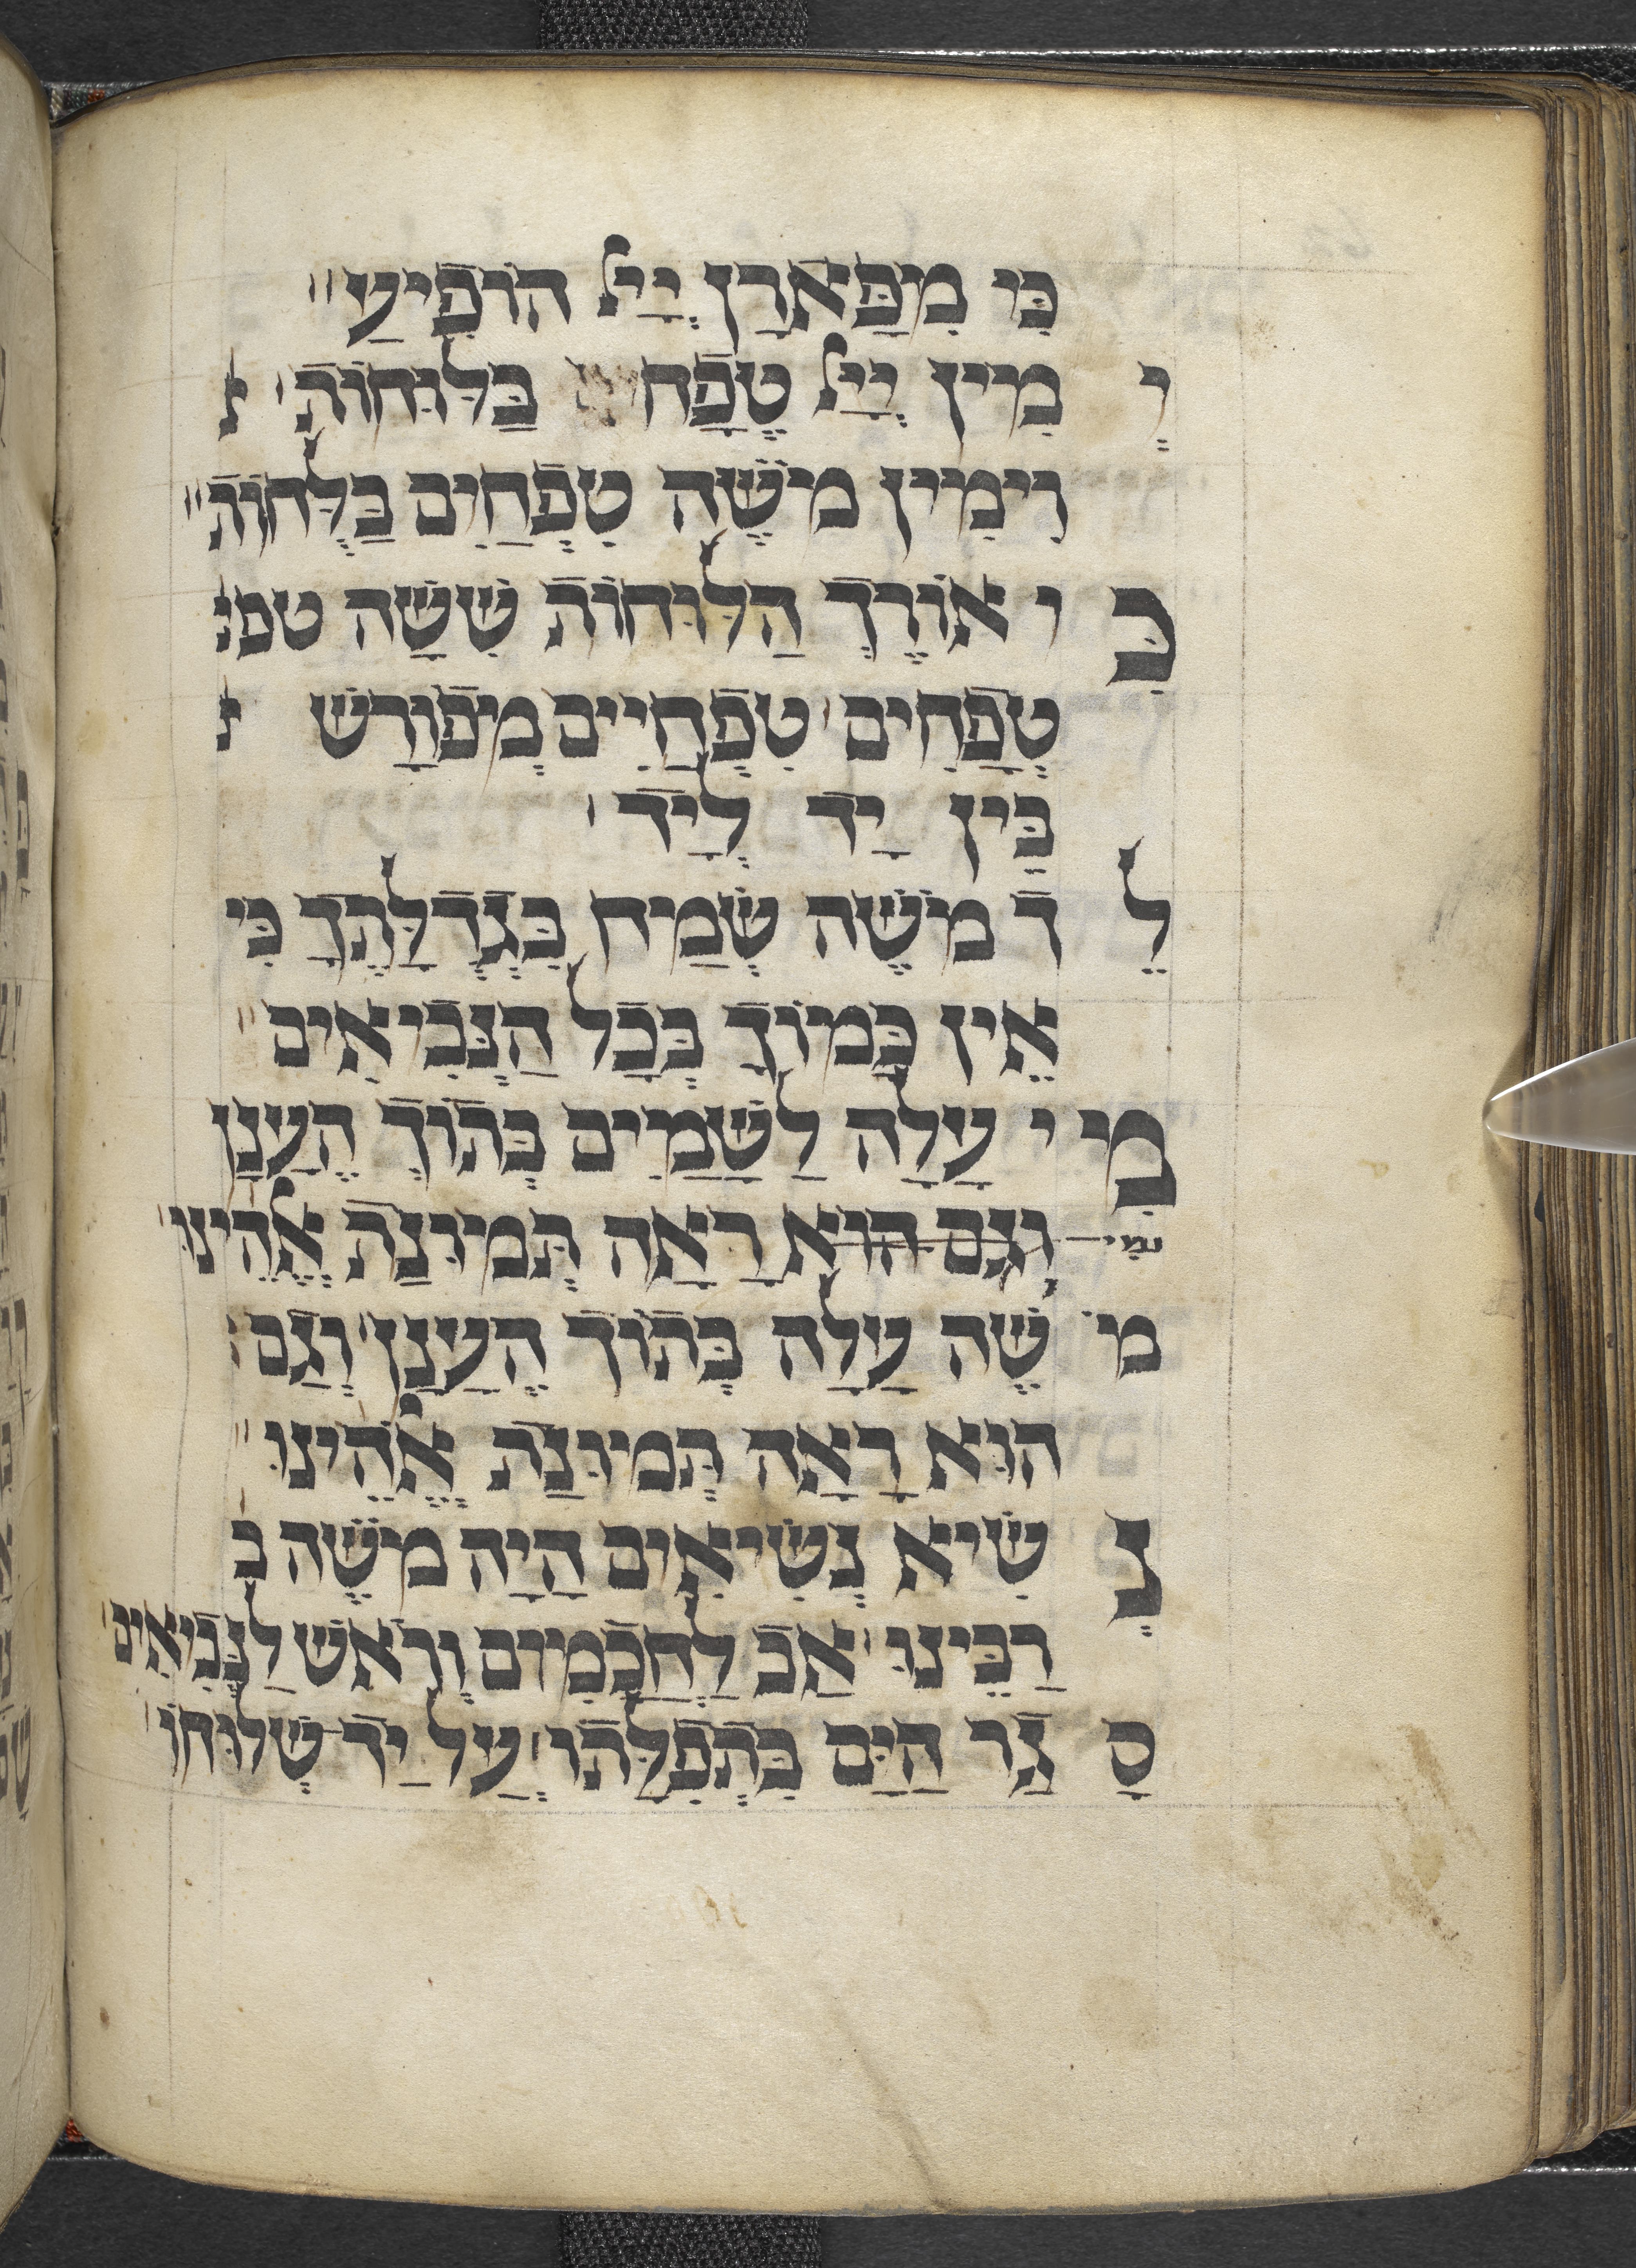 כִּי מִפָּארָן יְיָ הוֹפִיעַ׃
יְ מִין יְיָ טֶפָח בַּלּוּחוֹת׳
וִימִין מֹשֶׁה טִפְחַיִם בַּלְּחוֹת׃
כִּ י אוֹרֶךְ הַלּוּחוֹת שִׁשָּׁה טפ׳
טְפָחִים׳ טִפְחַיִים מְפוֹרָשׁ
בֵּין יָד לְיָד׳
לֵ ךְ מֹשֶׁה שְׂמַח בִּגְדֻלָּתֶךָ כִּי
אֵין כָּמוֹךָ בְּכָל הַנְּבִיאִים׃
מִ י עָלָה לַשָּׁמַיִם בְּתוֹךְ הֶעָנָן
וְגַם הוּא רָאָה תְּמוּנַת אֱלֹהֵינוּ׳
מֹ שֶׁה עָלָה בְּתוֹךְ הֶעָנָן׳ וְגַם
הוּא רָאָה תְּמוּנַת אֱלֹהֵינוּ׃
נְ שִׂיא נְשִׂיאִים הָיָה מֹשֶׁה
רַבֵּינוּ׳ אַב לַחֲכָמִים וְרֹאשׁ לַנְּבִיאִים׳
סָ גַר הַיָּם בִּתְפִלָּתוֹ׳ עַל יַד שְׁלוּחוֹ׳